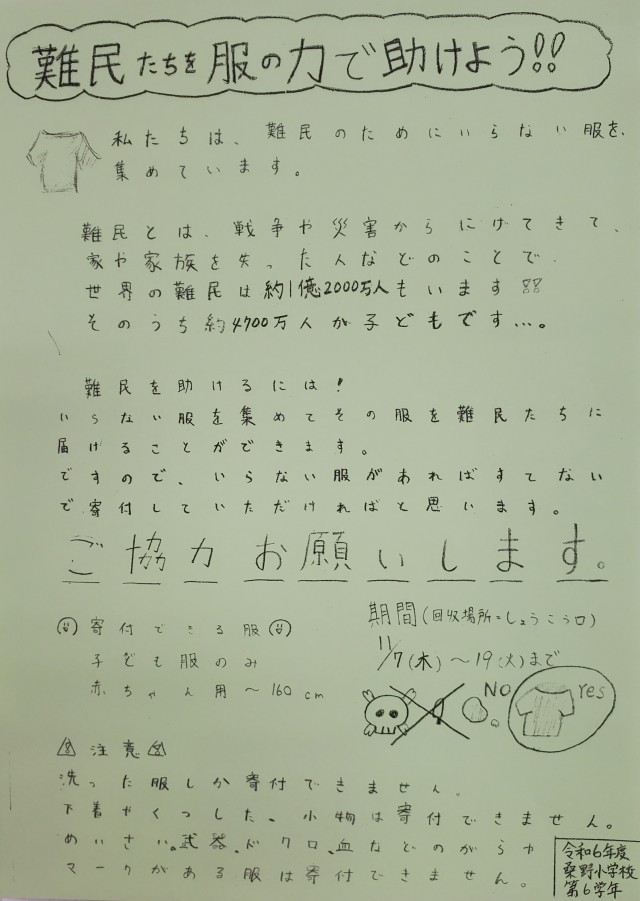 難民たちを服の力で助けよう!!
私たちは、難民のためにいらない服を、
集めています。
難民とは、戦争や災害からにげてきて、
家や家族を失った人などのことで、
世界の難民は約1億2000万人もいます!!
そのうち約4700万人が子どもです…。
難民を助けるには!
いらない服を集めてその服を難民たちに
届けることができます。
ですので、いらない服があればすてない
で寄付していただければと思います。
ご協力お願いします。
期間(回収場所=しょうこう口)
11/7(木)~19(火)まで
NO
Yes
寄付できる服
子ども服のみ
赤ちゃん用~160cm
注意
洗った服しか寄付できません。
下着やくつした、小物は寄付できません。
めいさい、武器、ドクロ、血などのがらや
マークがある服は寄付できません。
令和6年度
桑野小学校
第6学年